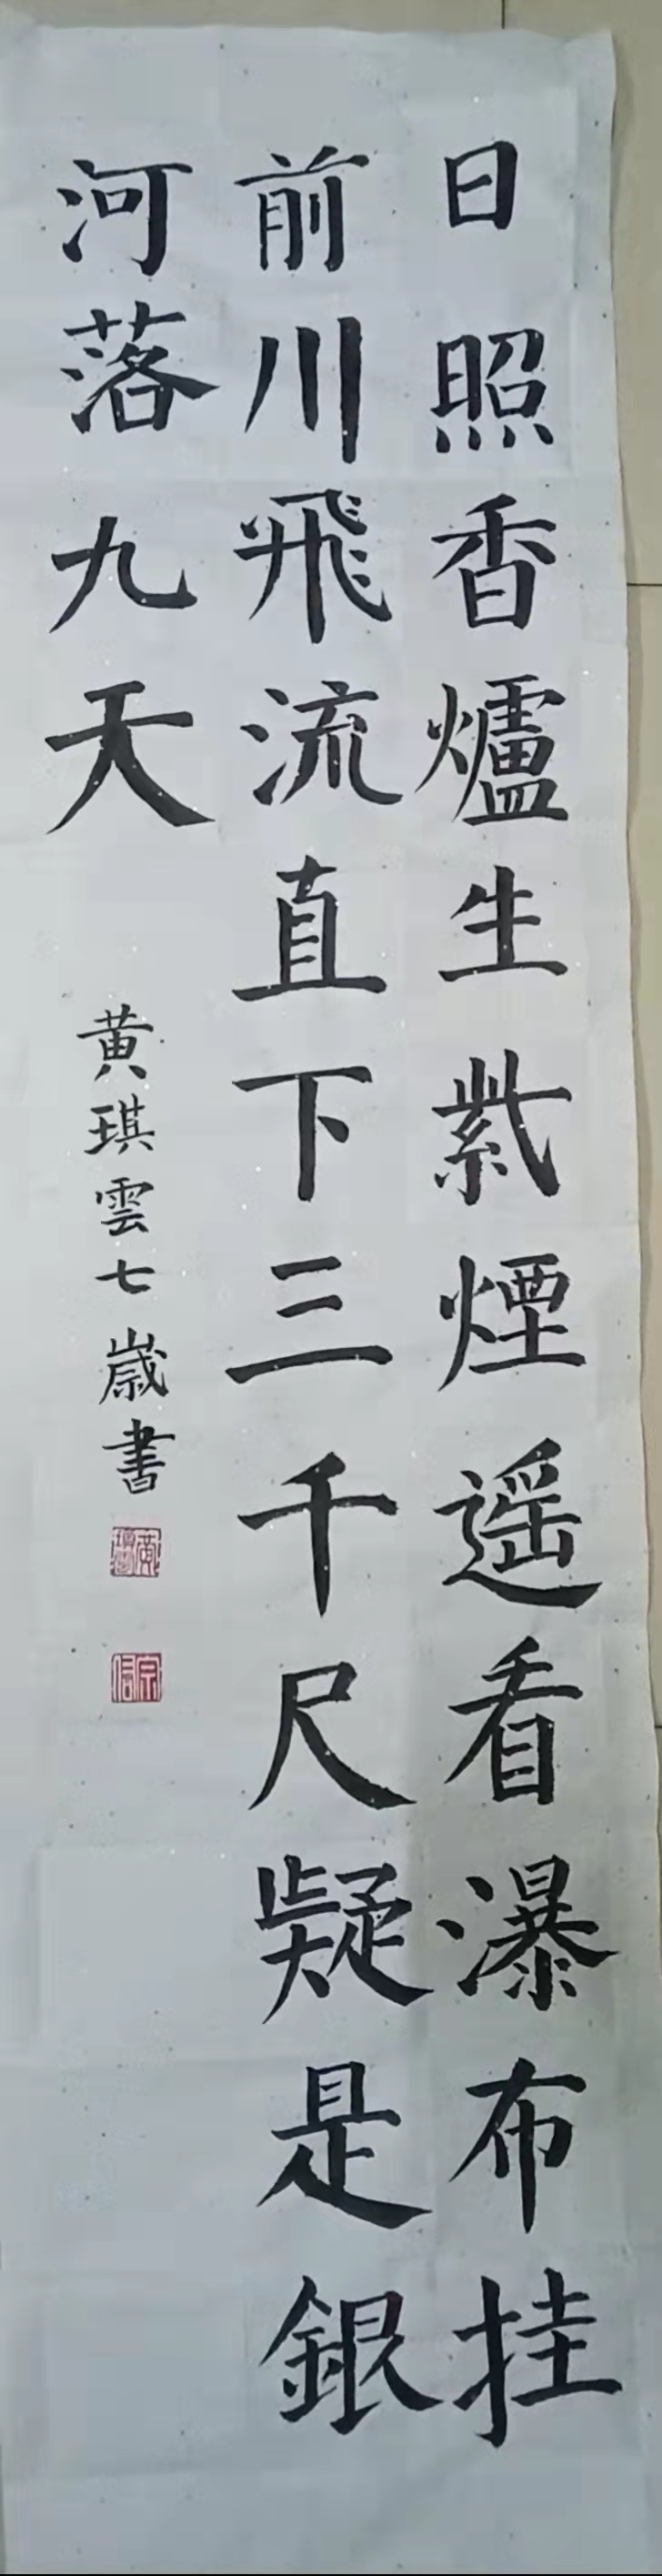 日照香爐生紫煙遥看瀑布挂
前川飛流直下三千尺疑是銀
河落九天
黄琪雲七歲書